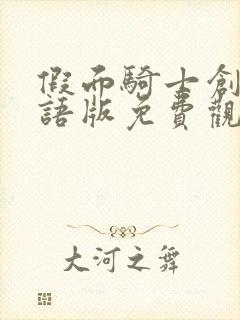 假面騎士創
語版免費觀
大河之舞